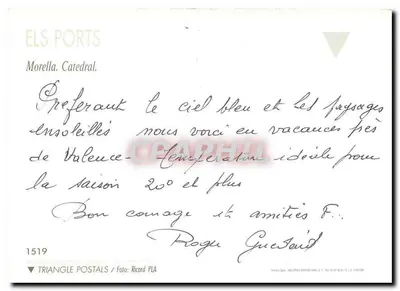 ELS PORTS
Morella. Catedral.
Préférant le ciel bleu et les paysages
ensoleillés nous voici en vacances près
de Valence - Température idéale pour
la saison 20° et plus
Bon courage et amitiés F..
Roger
1519
TRIANGLE POSTALS / Foto: Ricard PLA